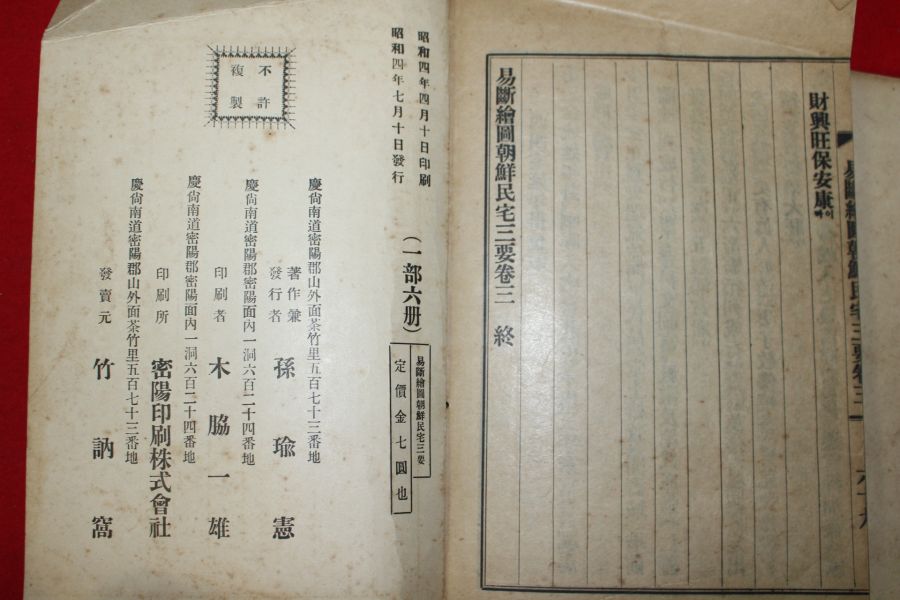 財興旺保安康
易斷繪圖朝鮮民宅三要卷三 終
昭和四年四月十日印刷
昭和四年七月十日發行
(一部六册)
易斷繪圖朝鮮民宅三要
定價金七圓也
不許
複製
慶尙南道密陽郡山外面茶竹里五百七十三番地
著作兼
發行者 孫瑜憲
慶尙南道密陽郡密陽面內一洞六百二十四番地
印刷者 木脇一雄
慶尙南道密陽郡密陽面內一洞六百二十四番地
印刷所 密陽印刷株式會社
慶尙南道密陽郡山外面茶竹里五百七十三番地
發賣元 竹訥窩